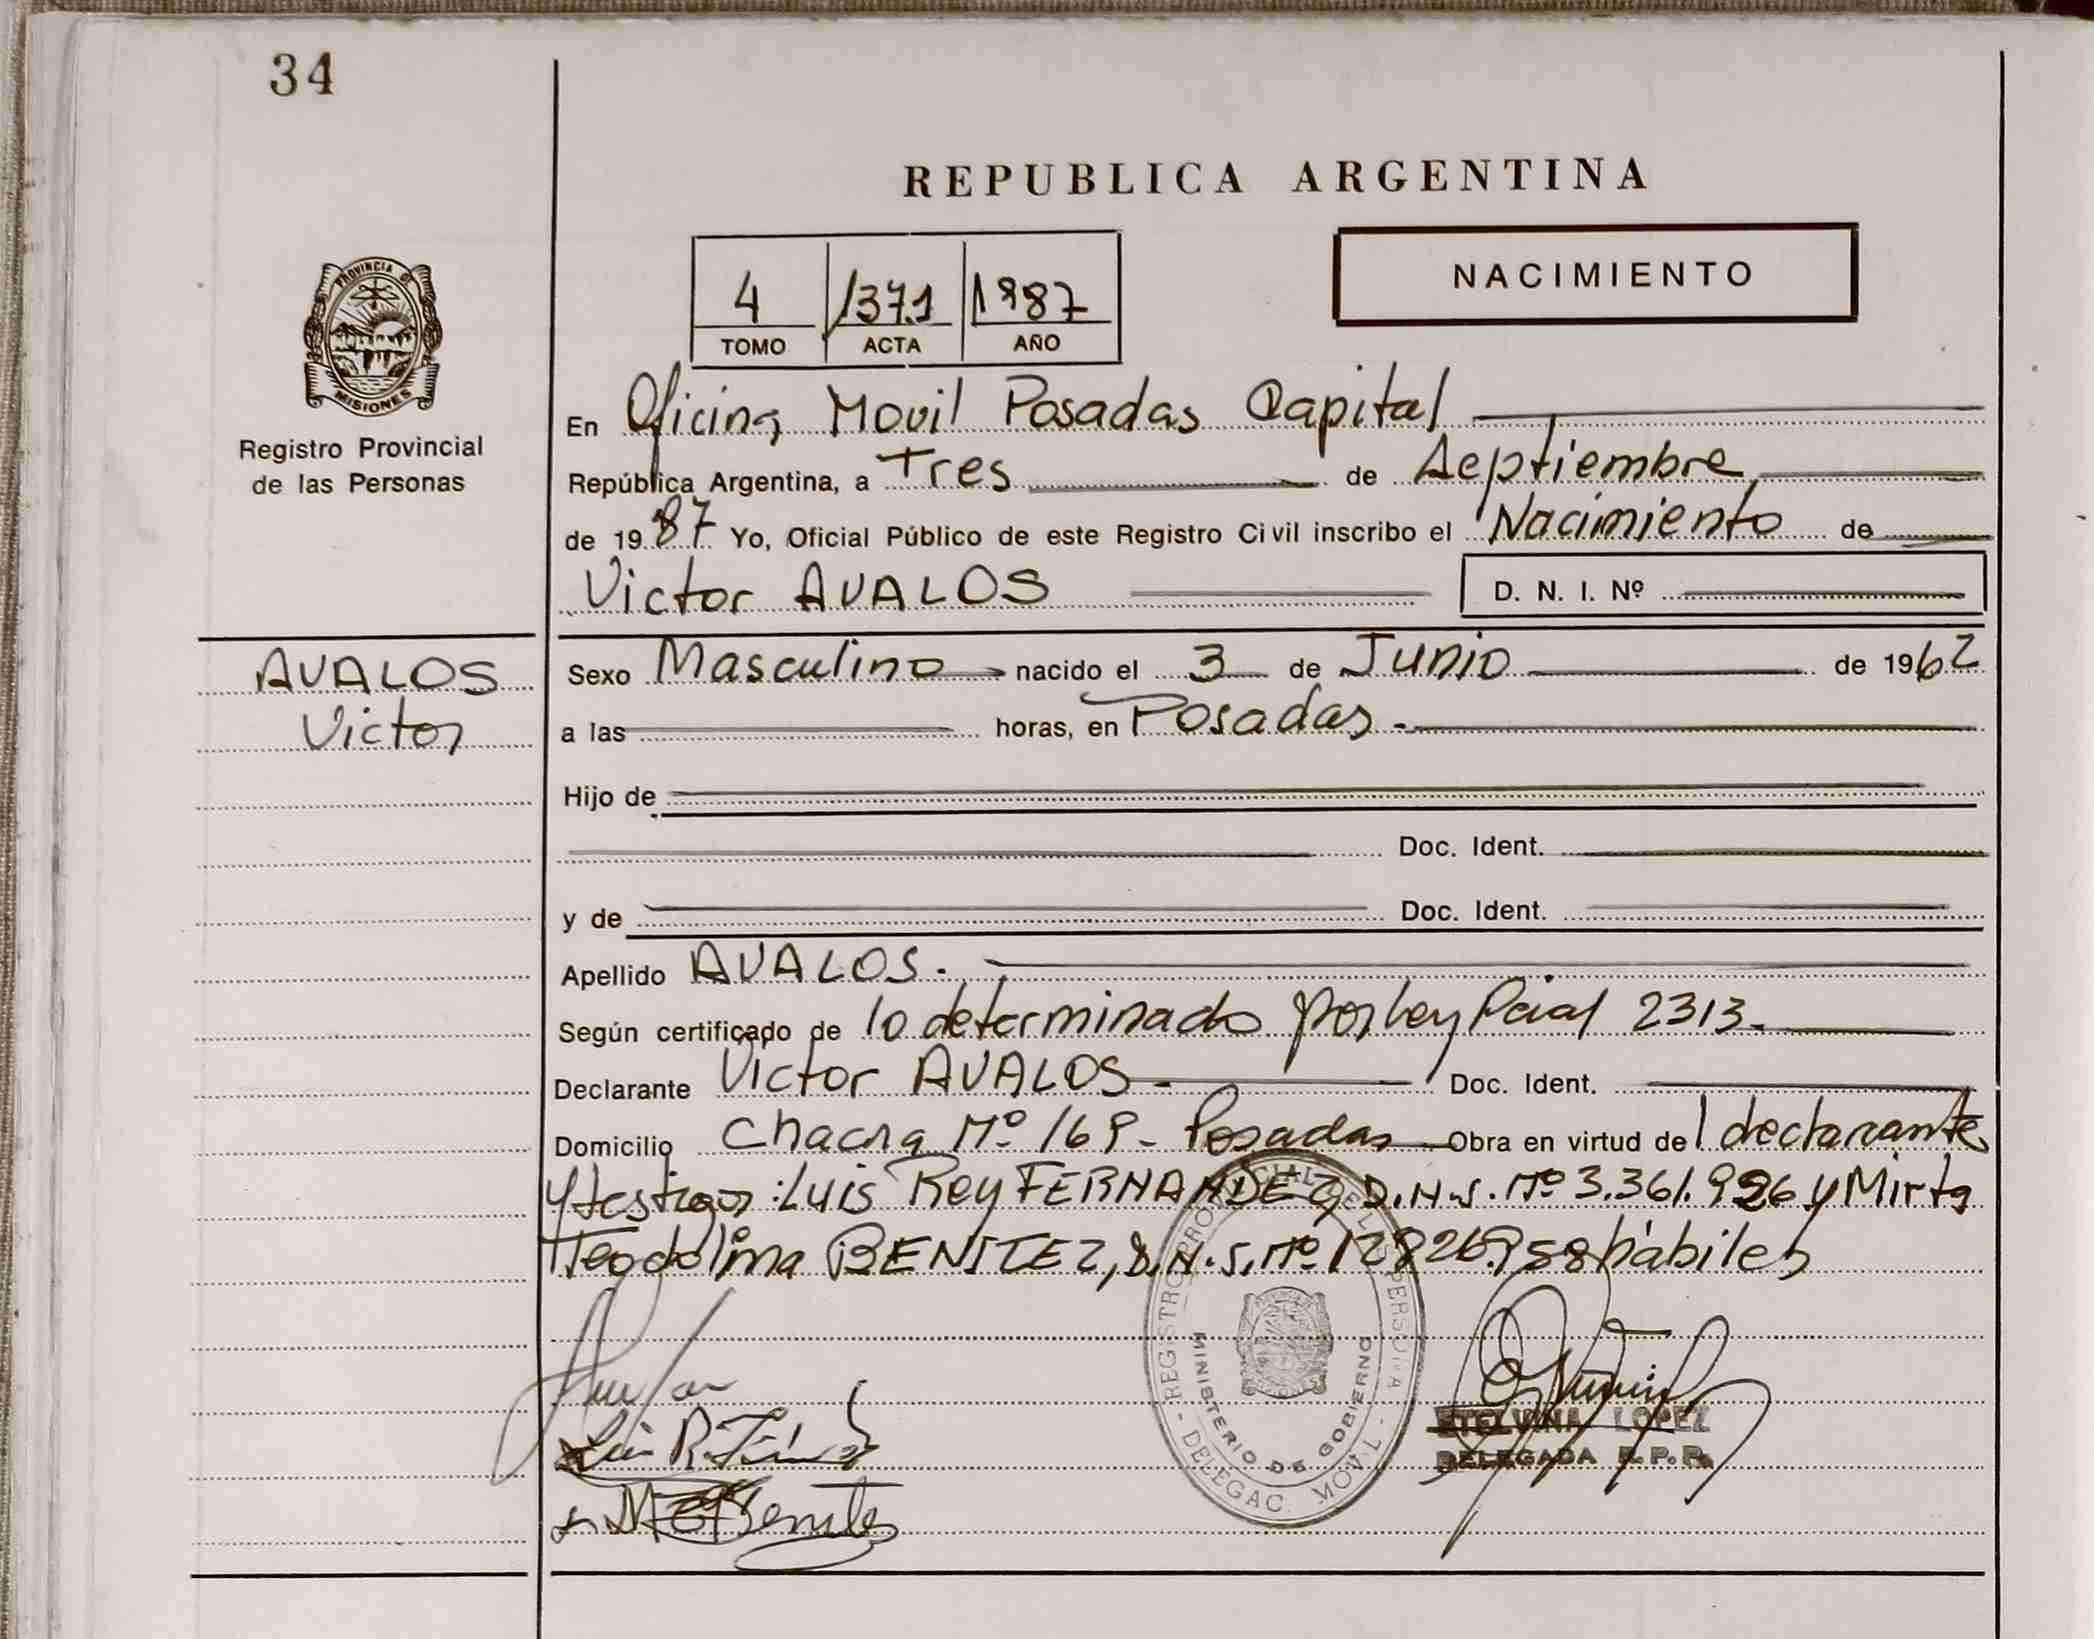 34
REPUBLICA ARGENTINA
NACIMIENTO
4 1371 1987
TOMO ACTA AÑO
PROVINCIA DE
MISIONES
Registro Provincial
de las Personas
En Oficina Movil Posadas Capital
República Argentina, a Tres de Septiembre
de 1987 Yo, Oficial Público de este Registro Civil inscribo el Nacimiento de
Victor AVALOS D. N. I. Nº
AVALOS
Victor
Sexo Masculino nacido el 3 de Junio de 1962
a las horas, en Posadas.
Hijo de
Doc. Ident.
y de Doc. Ident.
Apellido AVALOS.
Según certificado de lo determinado por Ley Pcial 2313.
Declarante Victor AVALOS. Doc. Ident.
Domicilio Chacra Nº 169 - Posadas Obra en virtud del declarante
y testigos: Luis Rey FERNANDEZ, D.N.I. Nº 3.361.926 y Mirta
Teodolina BENITEZ, D.N.I. Nº 12826958 hábiles
REGISTRO PROVINCIAL DE LAS PERSONA
MINISTERIO DE GOBIERNO
- DELEGAC. MOVIL -
LOPEZ
DELEGADA R.P.P.
Benitez